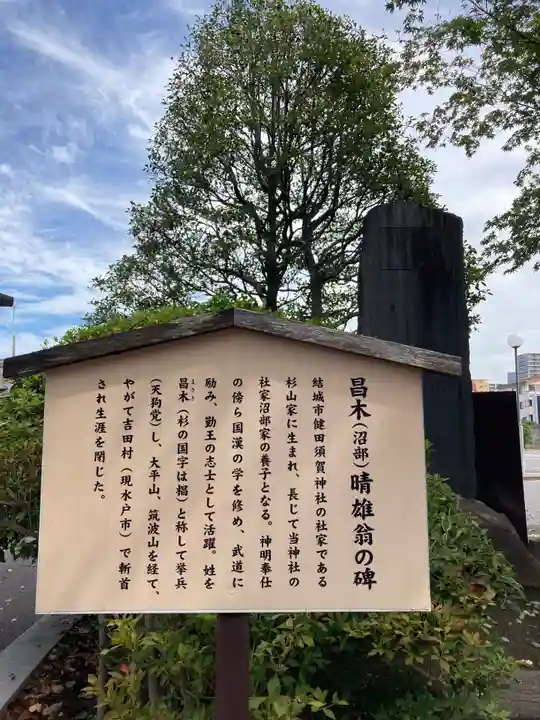 昌木(沼部)晴雄翁の碑
結城市健田須賀神社の社家である
杉山家に生まれ、長じて当神社の
社家沼部家の養子となる。神明奉仕
の傍ら国漢の学を修め、武道に
励み、勤王の志士として活躍。姓を
昌木(杉の国字は椙)と称して挙兵
(天狗党)し、大平山、筑波山を経て、
やがて吉田村(現水戸市)で斬首
され生涯を閉じた。